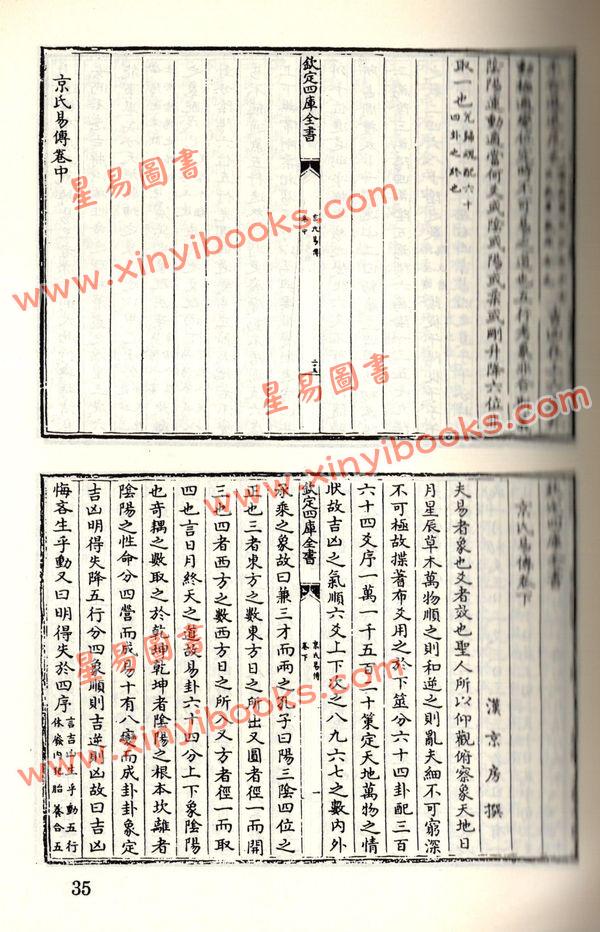 陰陽運動適當何爻或陰或陽或柔或剛升降六位
取一也
欽定四庫全書
京氏易傳
卷中
京氏易傳卷中
京氏易傳卷下
漢 京房 撰
夫易者象也爻者效也聖人所以仰觀俯察象天地日
月星辰草木萬物順之則和逆之則亂夫細不可窮深
不可極故揲蓍布爻用之於下筮分六十四卦配三百
六十四爻序一萬一千五百二十策定天地萬物之情
狀故吉凶之氣順六爻上下次之八九六七之數內外
欽定四庫全書
京氏易傳
卷下
一
承乘之象故曰兼三才而兩之孔子曰陽三陰四位之
正也三者東方之數東方日之所出又圓者徑一而開
三也四者西方之數西方日之所入又方者徑一而取
四也言日月終天之道故易卦六十四分上下象陰陽
也奇耦之數取之於乾坤乾坤者陰陽之根本坎離者
陰陽之性命分四營而成易十有八變而成卦卦象定
吉凶明得失降五行分四象順則吉逆則凶故曰吉凶
悔吝生乎動又曰明得失於四序
言吉凶生乎動五行
休廢內犯胎養合五
35
星易圖書
www.xinyibooks.com
星易圖書
www.xinyibooks.com
星易圖書
www.xinyibooks.com